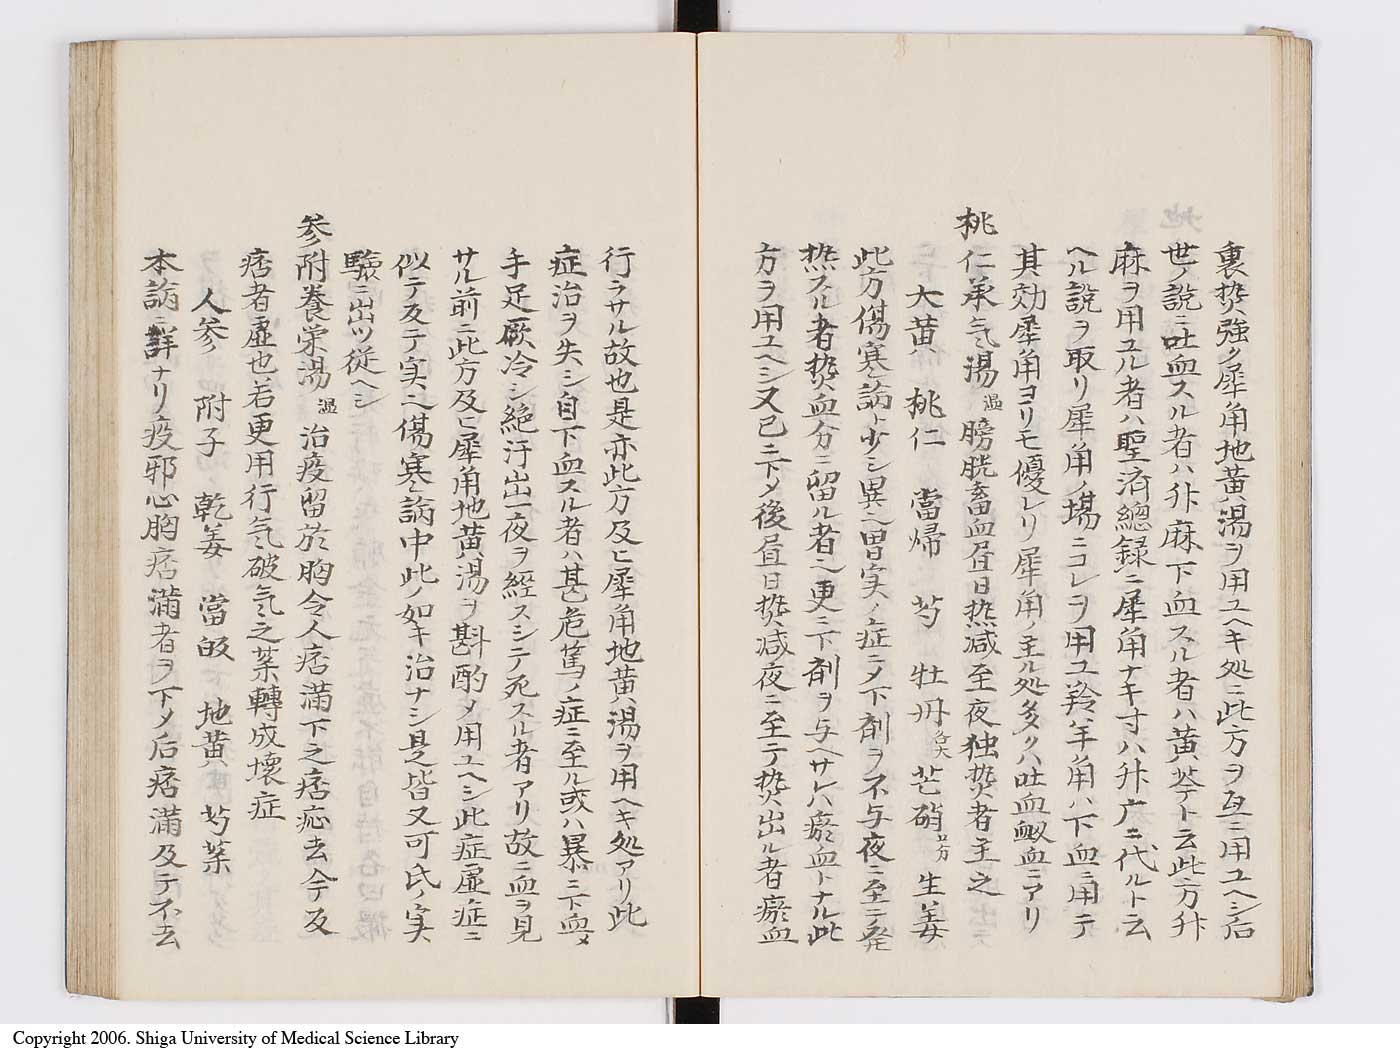 裏熱強ク犀角地黄湯ヲ用ユヘキ処ニ此方ヲ互ニ用ユヘシ后
世ノ説ニ吐血スル者ハ升麻下血スル者ハ黄芩ト云此方升
麻ヲ用ユル者ハ聖済總録ニ犀角ナキ寸ハ升广ニ代ルト云
ヘル説ヲ取リ犀角ノ場ニコレヲ用ユ羚羊角ハ下血ニ用テ
其効犀角ヨリモ優レリ犀角ノ主ル処多クハ吐血衂血ニアリ
桃仁承气湯 温 膀胱畜血昼日热减至夜独熱者主之
大黄 桃仁 當帰 芍 牡丹各大 芒硝 生姜
此方傷寒論ト少シ異ヘ胃实ノ症ニメ下剤ヲ不与夜ニ至テ発
热スル者熱血分ニ留ル者ヘ更ニ下剤ヲ与ヘサレハ瘀血トナル此
方ヲ用ユヘシ又已ニ下メ後昼日熱减夜ニ至テ熱出ル者瘀血
行ラサル故也是亦此方及ヒ犀角地黄湯ヲ用ヘキ処アリ此
症治ヲ失シ自下血スル者ハ甚危篤ノ症ニ至ル或ハ暴ニ下血メ
手足厥冷シ絶汗出一夜ヲ経スシテ死スル者アリ故ニ血ヲ見
サル前ニ此方及ヒ犀角地黄湯ヲ斟酌メ用ユヘシ此症虚症ニ
似テ反テ实ヘ傷寒論中此ノ如キ治ナシ是皆又可氏ノ实
驗ニ出ツ從ヘシ
参附養栄湯 温 治疫留於胸令人痞満下之痞応去今反
痞者虚也若更用行气破气之菜轉成壊症
人参 附子 乾姜 當皈 地黄 芍菜
本論ニ詳ナリ疫邪心胸痞滿者ヲ下メ后痞滿反テ不去
Copyright 2006. Shiga University of Medical Science Library